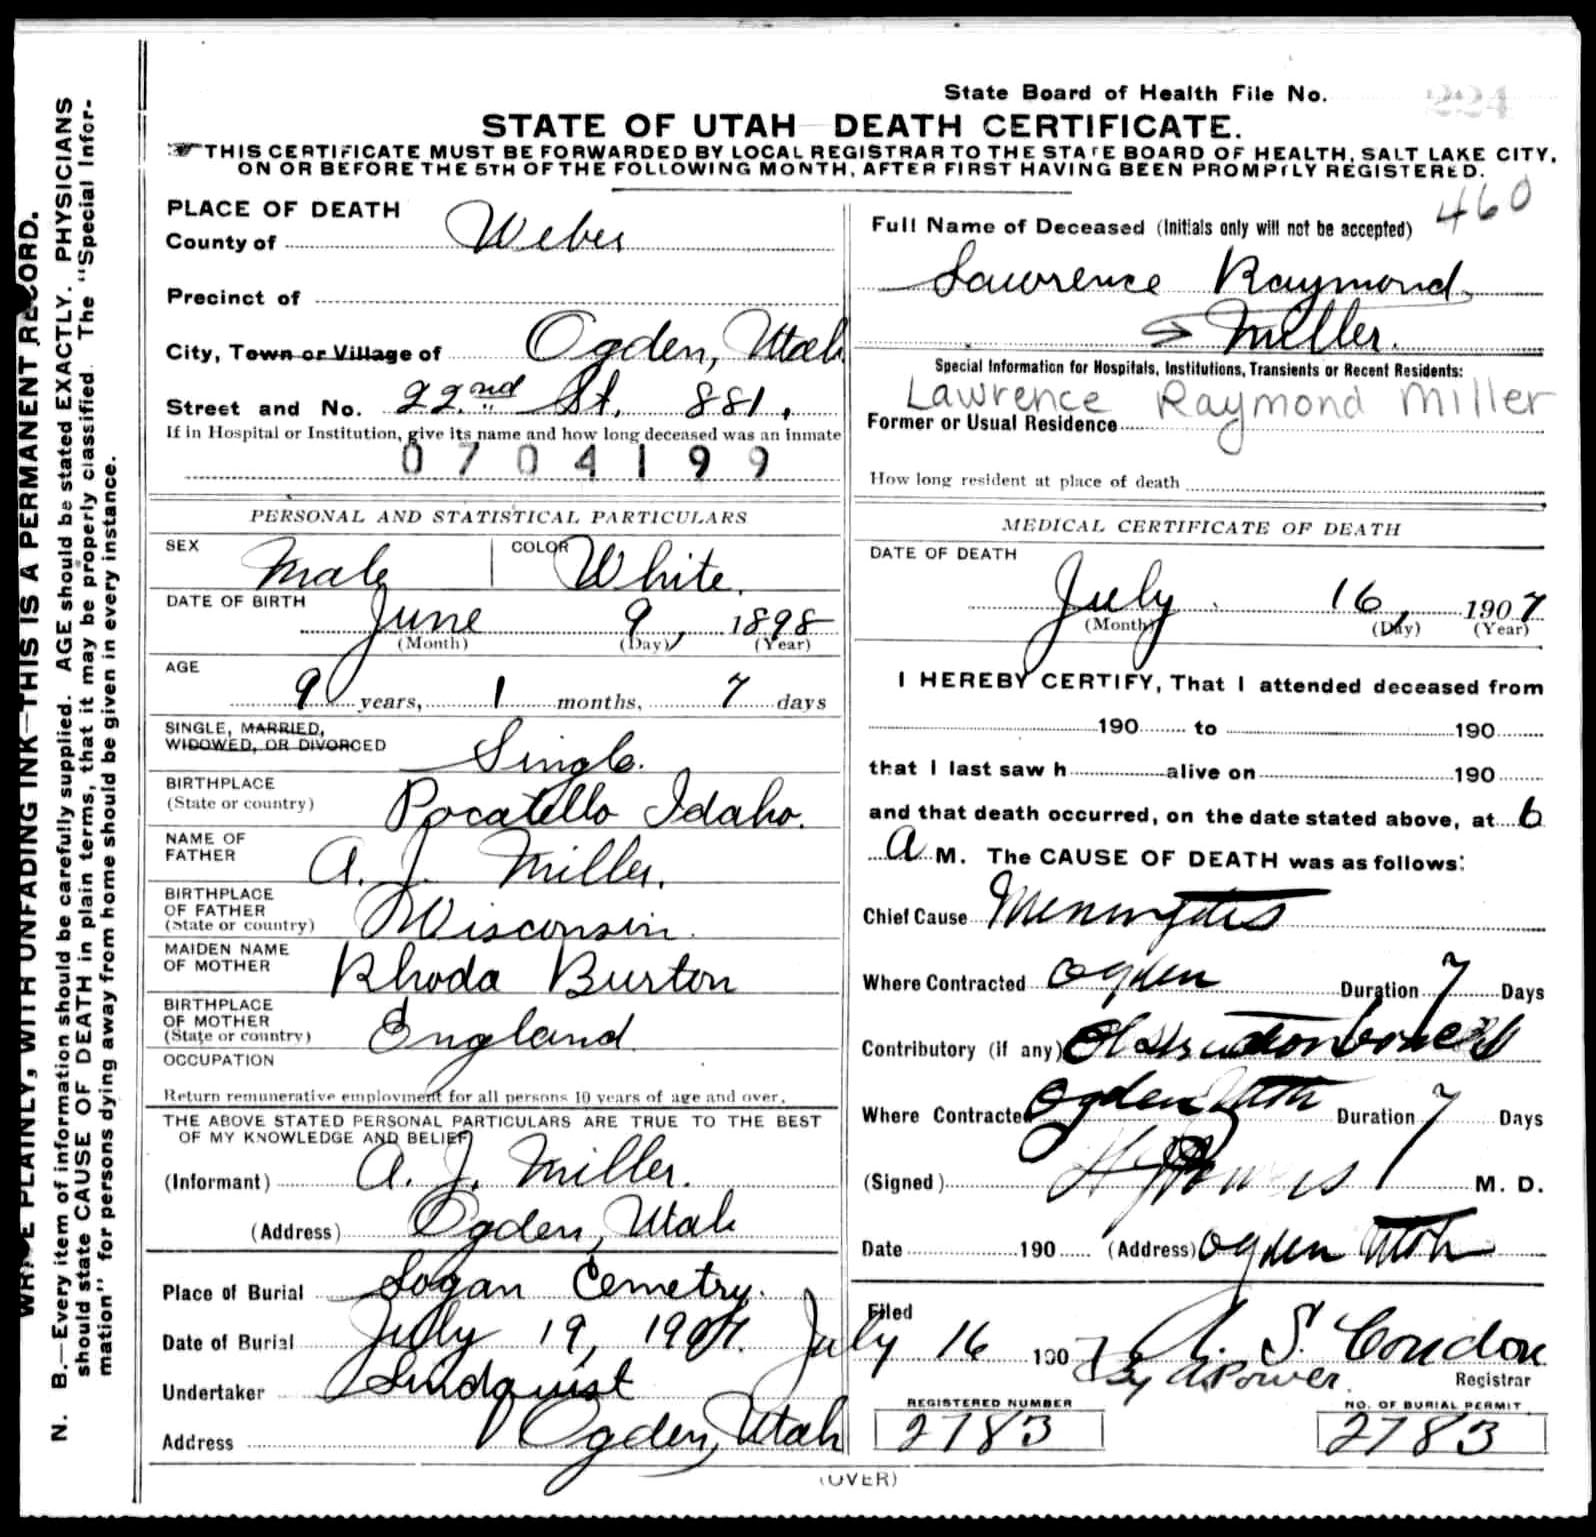 State Board of Health File No. 224
STATE OF UTAH DEATH CERTIFICATE.
THIS CERTIFICATE MUST BE FORWARDED BY LOCAL REGISTRAR TO THE STATE BOARD OF HEALTH, SALT LAKE CITY,
ON OR BEFORE THE 5TH OF THE FOLLOWING MONTH, AFTER FIRST HAVING BEEN PROMPTLY REGISTERED.
WRITE PLAINLY, WITH UNFADING INK—THIS IS A PERMANENT RECORD.
N. B.—Every item of information should be carefully supplied. AGE should be stated EXACTLY. PHYSICIANS
should state CAUSE OF DEATH in plain terms, that it may be properly classified. The "Special Infor-
mation" for persons dying away from home should be given in every instance.
PLACE OF DEATH
County of Weber
Precinct of
City, Town or Village of Ogden, Utah
Street and No. 22nd St. 881.
If in Hospital or Institution, give its name and how long deceased was an inmate
0704199
PERSONAL AND STATISTICAL PARTICULARS
SEX Male COLOR White.
DATE OF BIRTH June 9, 1898
(Month) (Day) (Year)
AGE
9 years, 1 months, 7 days
SINGLE, MARRIED,
WIDOWED, OR DIVORCED Single.
BIRTHPLACE
(State or country) Pocatello Idaho.
NAME OF
FATHER A. J. Miller.
BIRTHPLACE
OF FATHER
(State or country) Wisconsin.
MAIDEN NAME
OF MOTHER Rhoda Burton
BIRTHPLACE
OF MOTHER
(State or country) England
OCCUPATION
Return remunerative employment for all persons 10 years of age and over.
THE ABOVE STATED PERSONAL PARTICULARS ARE TRUE TO THE BEST
OF MY KNOWLEDGE AND BELIEF
(Informant) A. J. Miller.
(Address) Ogden, Utah
Place of Burial Logan Cemetry.
Date of Burial July 19, 1907.
Undertaker Lindquist
Address Ogden, Utah
460
Full Name of Deceased (Initials only will not be accepted)
Lawrence Raymond
Miller.
Special Information for Hospitals, Institutions, Transients or Recent Residents:
Lawrence Raymond Miller
Former or Usual Residence
How long resident at place of death
MEDICAL CERTIFICATE OF DEATH
DATE OF DEATH
July 16, 1907
(Month) (Day) (Year)
I HEREBY CERTIFY, That I attended deceased from
190 to 190
that I last saw h alive on 190
and that death occurred, on the date stated above, at 6
A M. The CAUSE OF DEATH was as follows:
Chief Cause Meningitis
Where Contracted Ogden Duration 7 Days
Contributory (if any)
Where Contracted Ogden Utah Duration 7 Days
(Signed) Powers M. D.
Date 190 (Address) Ogden Utah
Filed
July 16 1907 S. Condon
By Power. Registrar
REGISTERED NUMBER NO. OF BURIAL PERMIT
2783 2783
(OVER)